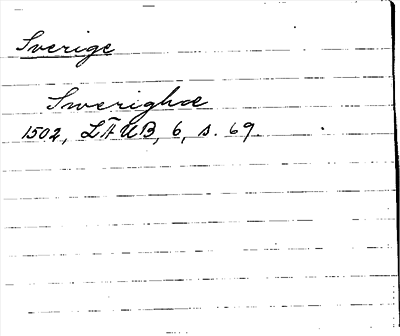 Sverige
Swerighæ
1502, LÄUB, 6, s. 69.